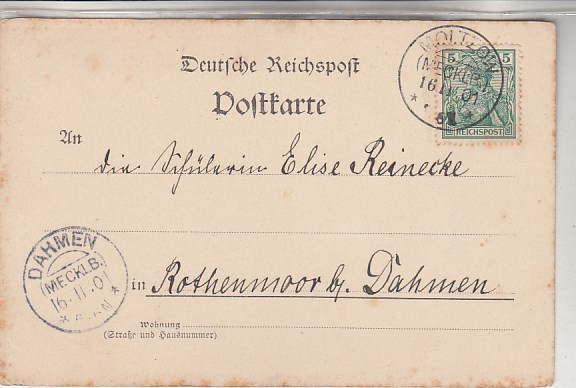 Deutsche Reichspost
Postkarte
MOLTZOW
(MECKLB.)
16.11.01
5
5
REICHSPOST
An
die Schülerin Elise Reinecke
DAHMEN
(MECKLB.)
16.11.01
in Rothenmoor b/ Dahmen
Wohnung
(Straße und Hausnummer)